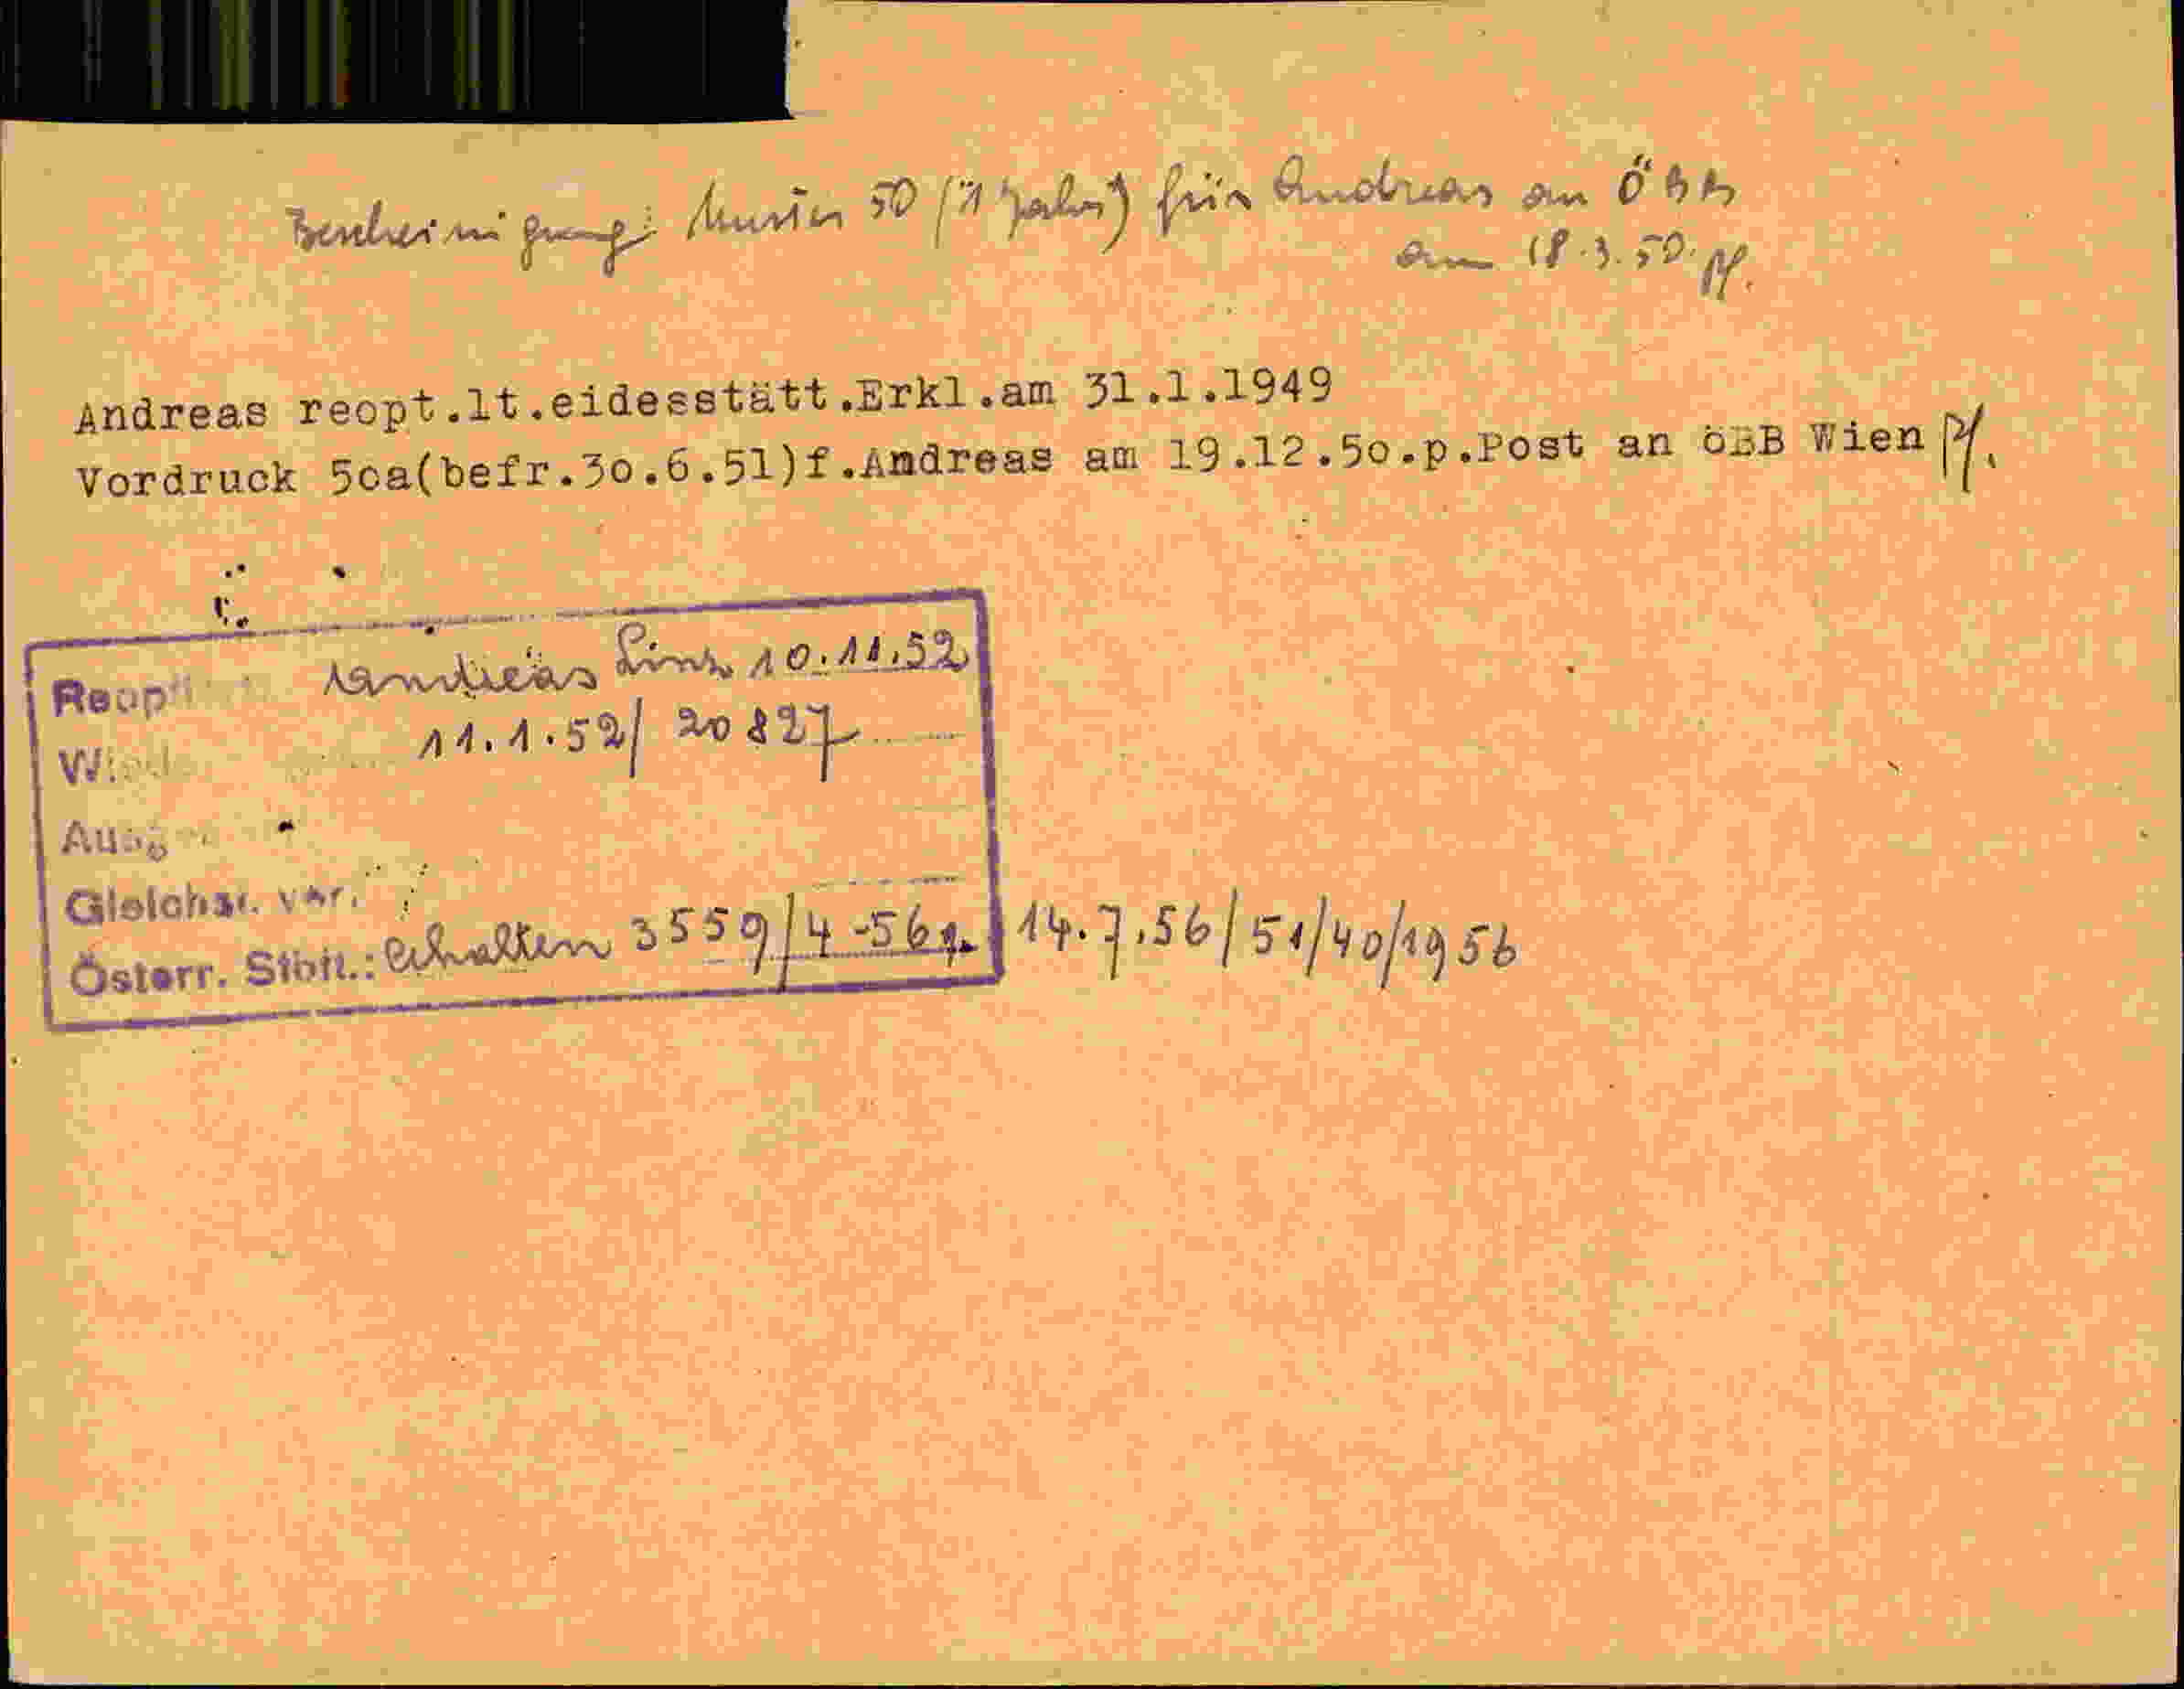 Bescheinigung: Muster 50 (1 Jahr) für Andreas an ÖBB
am 18.3.50. Pf.
Andreas reopt.lt.eidesstätt.Erkl.am 31.1.1949
Vordruck 50a(befr.30.6.51)f.Andreas am 19.12.50.p.Post an öBB Wien Pf.
Andreas Linz 10.11.52
11.1.52/ 20827
Gleichst. var.
Österr. Stbh.: Erhalten 3559/4-56 14.7.56/51/40/1956